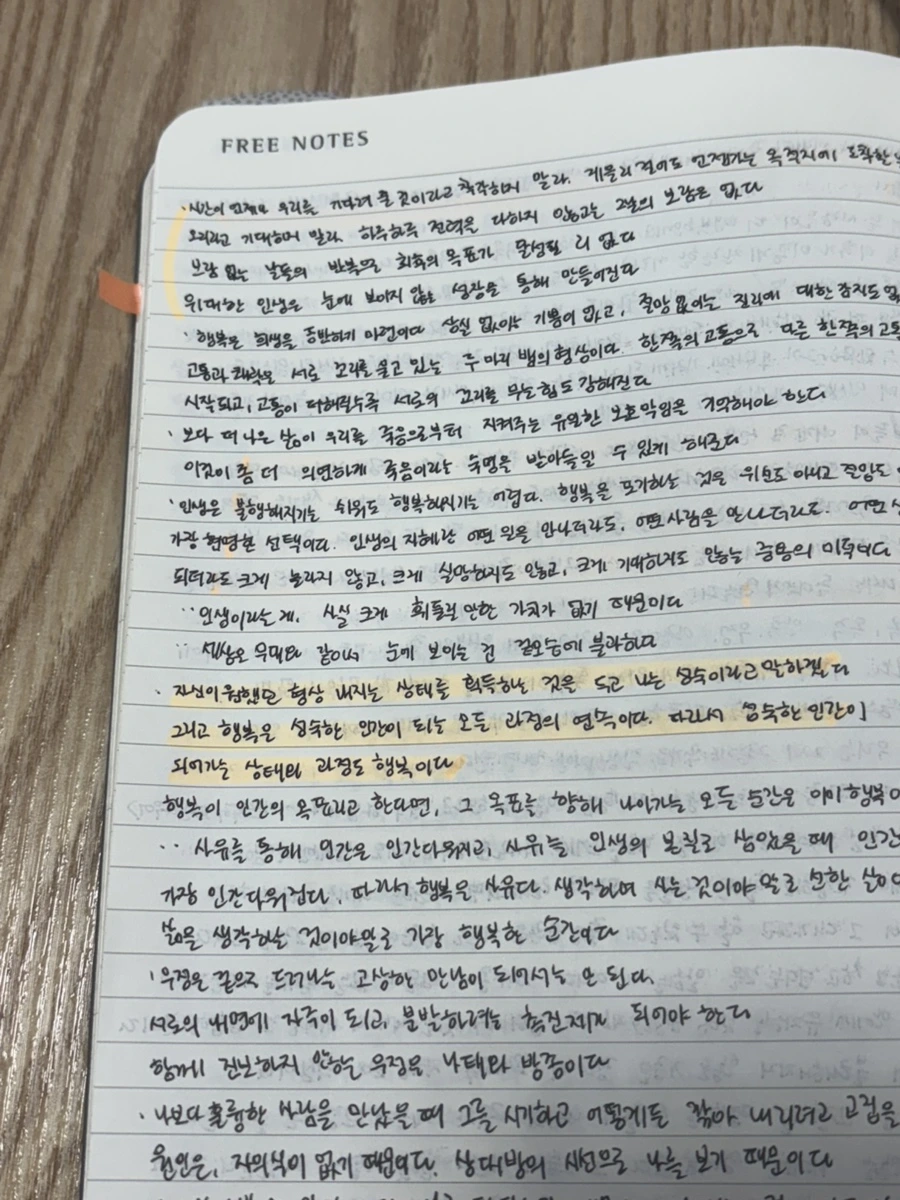 FREE NOTES
· 시간이 언제나 우리를 기다려 줄 것이라고 착각하지 말라. 게을리 걸어도 언젠가는 목적지에 도착할
오리라고 기대하지 말라. 하루하루 전력을 다하지 않고는 그날의 보람은 없다
보람 없는 날들의 반복으로 최후의 목표가 달성될 리 없다
위대한 인생은 눈에 보이지 않는 성장을 통해 만들어진다
· 행복은 희생을 동반하기 마련이다 상실 없이는 기쁨이 없고, 절망 없이는 진리에 대한 감지도 없
고통과 쾌락은 서로 꼬리를 물고 있는 두 마리 뱀의 형상이다. 한쪽의 고통으로 다른 한쪽의 고통
시작되고, 고통이 더해질수록 서로의 꼬리를 무는 힘도 강해진다
· 보다 더 나은 삶이 우리를 죽음으로부터 지켜주는 유일한 보호막임을 기억해야 한다
이것이 좀 더 의연하게 죽음이라는 숙명을 받아들일 수 있게 해준다
· 인생은 불행해지기는 쉬워도 행복해지기는 어렵다. 행복을 포기하는 것은 위선도 아니고 절망도
가장 현명한 선택이다. 인생의 지혜란 어떤 일을 만나더라도, 어떤 사람을 만나더라도. 어떤
되더라도 크게 놀라지 않고, 크게 실망하지도 않고, 크게 기대하지도 않는 중용의 미덕이다
∵ 인생이라는 게. 사실 크게 휘둘릴 만한 가치가 없기 때문이다
∵ 세상은 무대와 같아서 눈에 보이는 건 겉모습에 불과하다
· 자신이 원했던 형상 내지는 상태를 획득하는 것을 두고 나는 성숙이라고 말하겠다
그리고 행복은 성숙한 인간이 되는 모든 과정의 연속이다. 따라서 성숙한 인간이
되어가는 상태와 과정도 행복이다
행복이 인간의 목표라고 한다면, 그 목표를 향해 나아가는 모든 순간은 이미 행복
∵ 사유를 통해 인간은 인간다워지고, 사유를 인생의 본질로 삼았을 때 인간
가장 인간다워진다. 따라서 행복은 사유다. 생각하며 사는 것이야 말로 선한 삶이
삶을 생각하는 것이야말로 가장 행복한 순간이다
· 우정은 겉으로 드러나는 고상한 만남이 되어서는 안 된다.
서로의 내면에 자극이 되고, 분발하려는 촉진제가 되어야 한다
함께 진보하지 않는 우정은 나태와 방종이다
· 나보다 훌륭한 사람을 만났을 때 그를 시기하고 어떻게든 깎아 내리려고 고집을
원인은, 자의식이 없기 때문이다. 상대방의 시선으로 나를 보기 때문이다